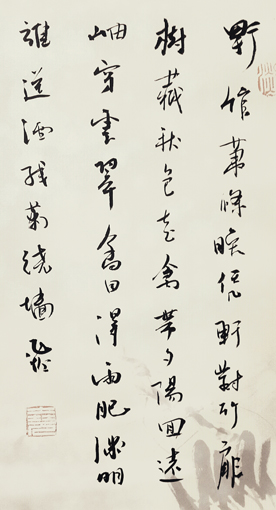 野館蕭條晚凭軒對竹扉
樹藏秋色老禽帶夕陽回遠
岫穿雲翠畬田得雨肥淵明
誰送酒殘菊繞墻飛